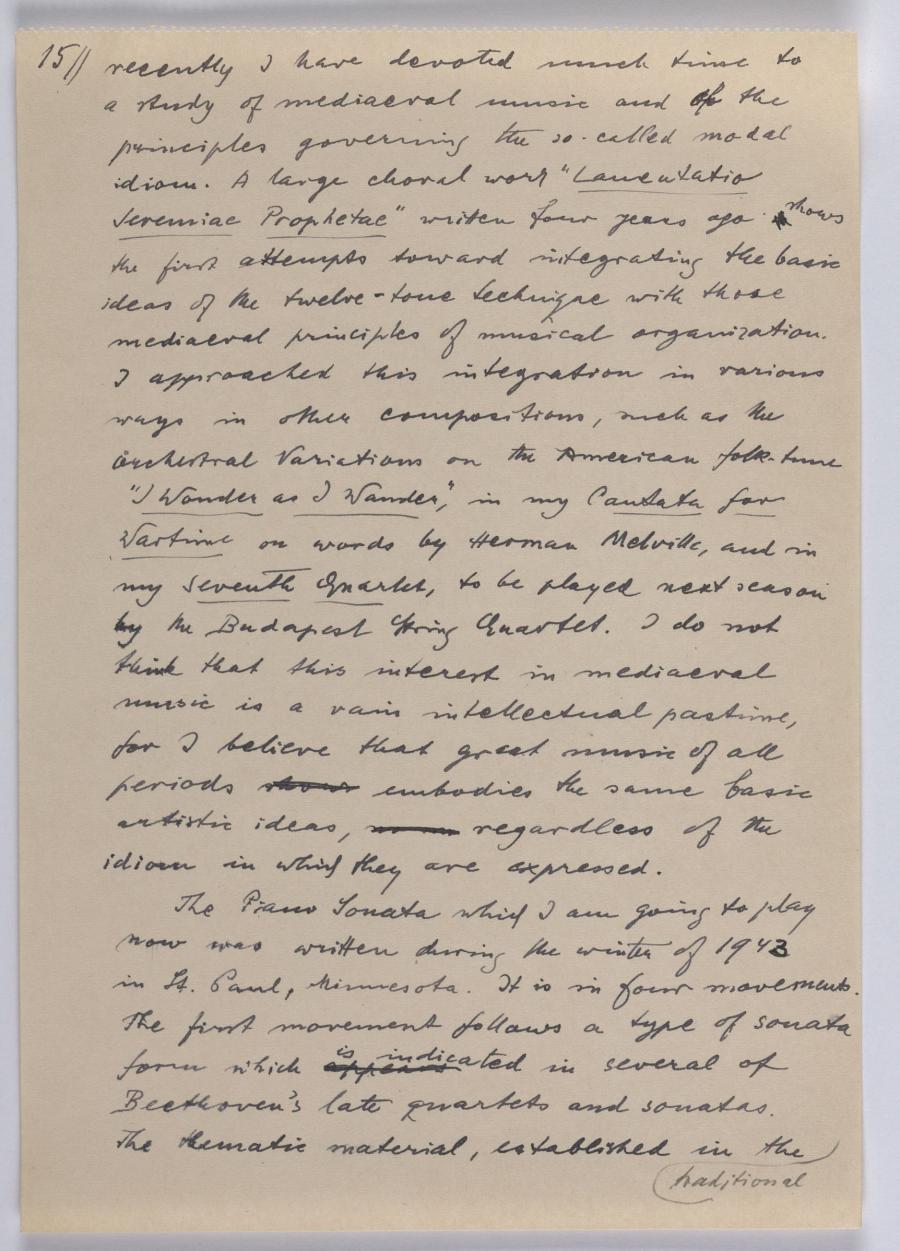 15// recently I have devoted much time to
a study of mediaeval music and of the
principles governing the so-called modal
idiom. A large choral work "Lamentatio
Jeremiae Prophetae" written four years ago shows
the first attempts toward integrating the basic
ideas of the twelve-tone technique with those
mediaeval principles of musical organization.
I approached this integration in various
ways in other compositions, such as the
orchestral Variations on the American folk-tune
"I Wonder as I Wander", in my Cantata for
Wartime on words by Herman Melville, and in
my Seventh Quartet, to be played next season
by the Budapest String Quartet. I do not
think that this interest in mediaeval
music is a vain intellectual pastime,
for I believe that great music of all
periods embodies the same basic
artistic ideas, regardless of the
idiom in which they are expressed.
The Piano Sonata which I am going to play
now was written during the winter of 1943
in St. Paul, Minnesota. It is in four movements.
The first movement follows a type of sonata
form which is indicated in several of
Beethoven's late quartets and sonatas.
The thematic material, established in the
traditional